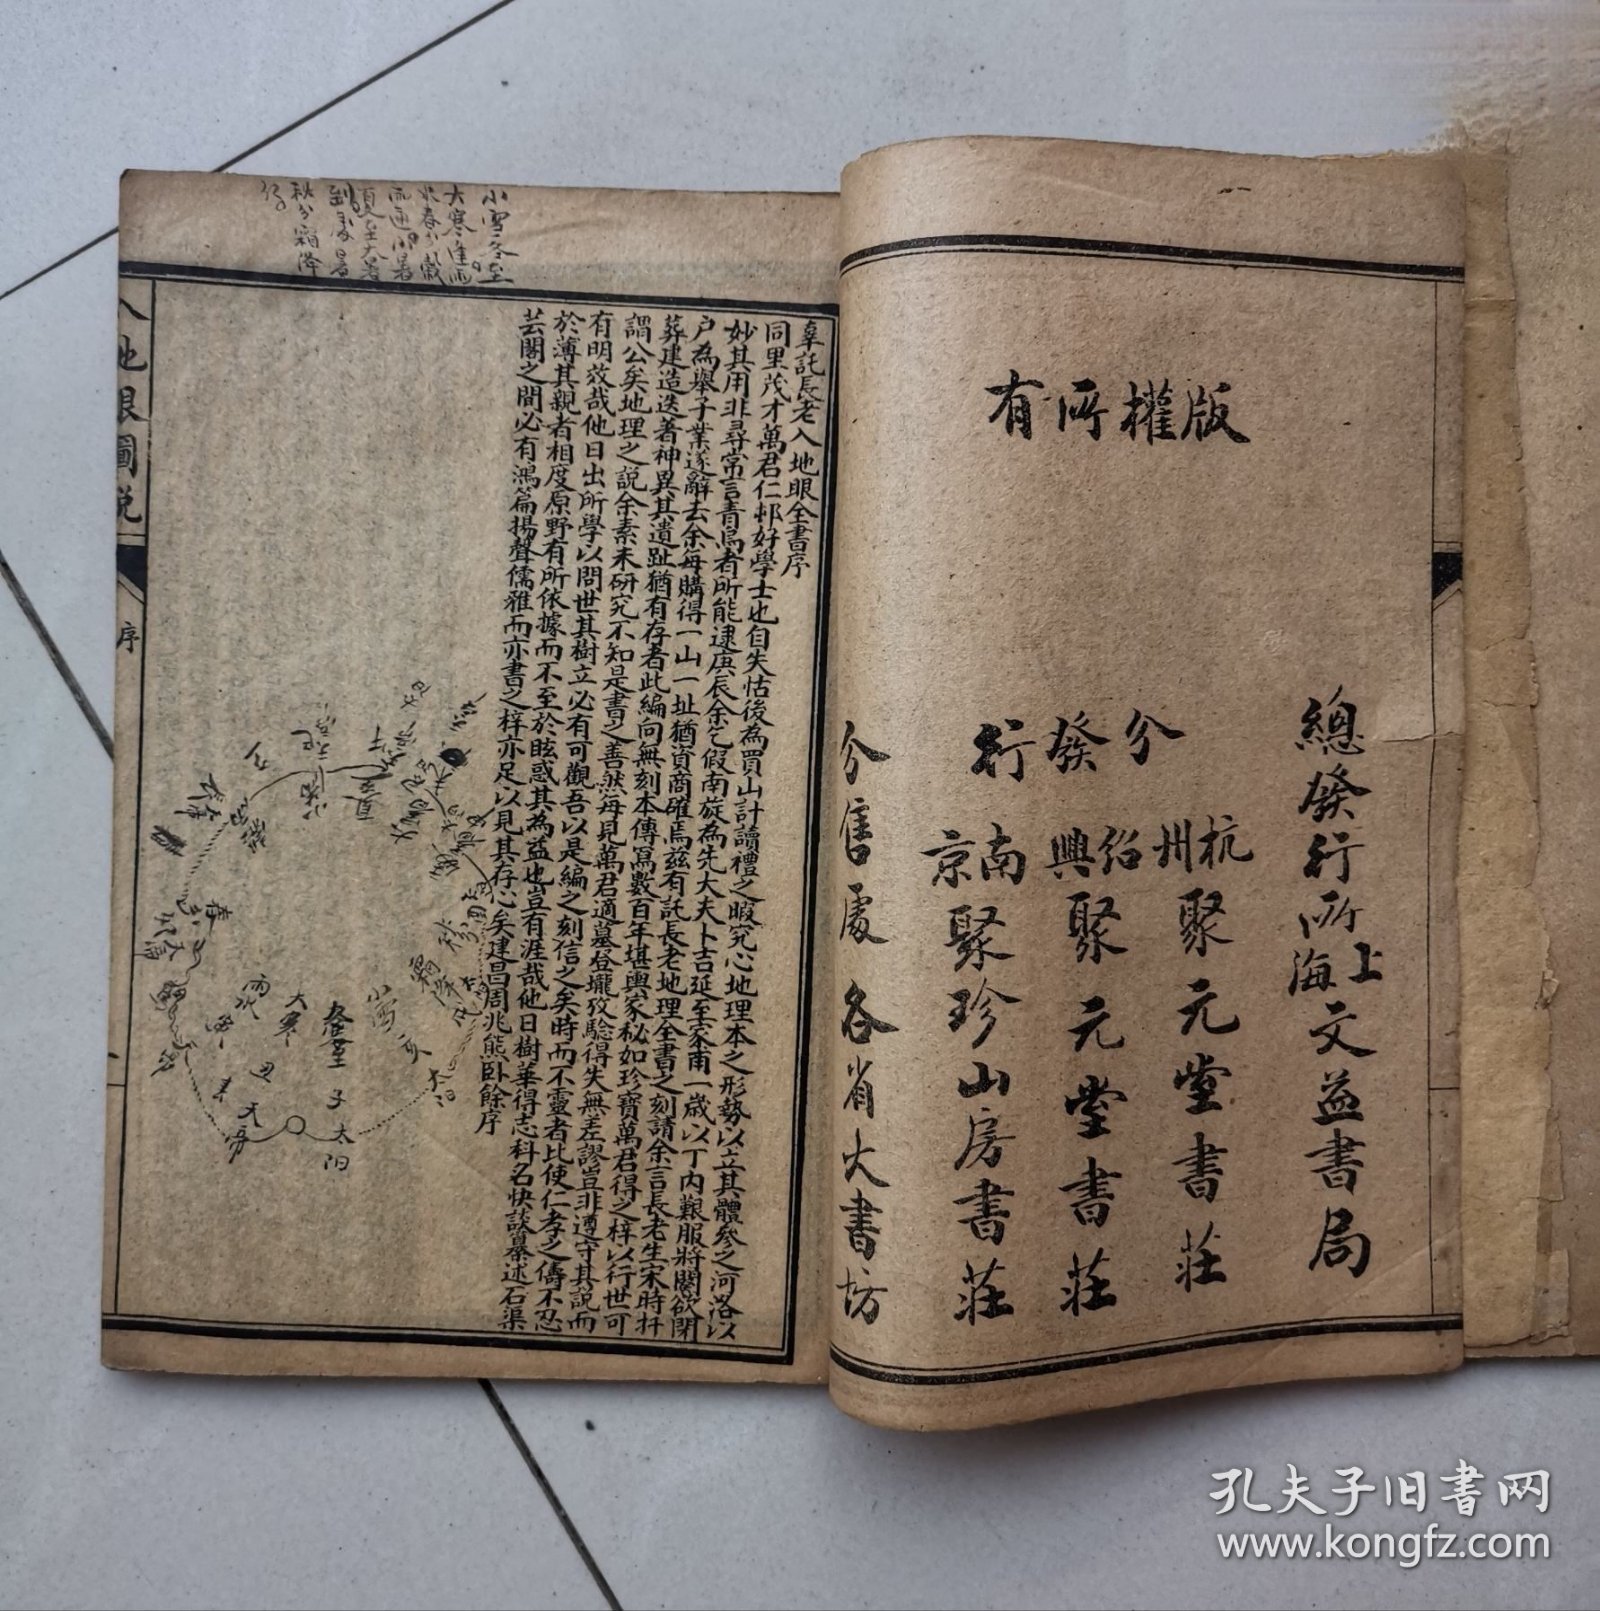 版權所有
總發行所上海文益書局
分發行
杭州聚元堂書莊
紹興聚元堂書莊
南京聚珍山房書莊
分售處各省大書坊
辜託長老入地眼全書序
同里茂才萬君仁邨好學士也自失怙後為買山計讀禮之暇究心地理本之形勢以立其體參之河洛以
妙其用非尋常言青烏者所能逮庚辰余乞假南旋為先大夫卜吉延至家甫一歲以丁內艱服將闋欲閉
户為舉子業遂辭去余每購得一山一址猶資商確焉茲有託長老地理全書之刻請余言長老生宋時扞
葬建造迭著神異其遺趾猶有存者此編向無刻本傳寫數百年堪輿家秘如珍寶萬君得之梓以行世可
謂公矣地理之説余素未研究不知是書之善然每見萬君適墓登壠攷驗得失無差謬豈非遵守其説而
有明效哉他日出所學以問世其樹立必有可觀吾以是編之刻信之矣時而不靈者比使仁孝之儔不忍
於薄其親者相度原野有所依據而不至於眩惑其為益也豈有涯哉他日樹華得志科名快談纂述石渠
芸閣之間必有鴻篇揚聲儒雅而亦書之梓亦足以見其存心矣建昌周兆熊卧餘序
入地眼圖説
序
一
小雪冬至
大寒雨
春分
暑
夏至大暑
處暑
秋分霜降
夏至
大暑
秋分
霜降
小雪
亥
冬至
子
太陽
大寒
丑
雨水
寅
春分
孔夫子旧书网
www.kongfz.com